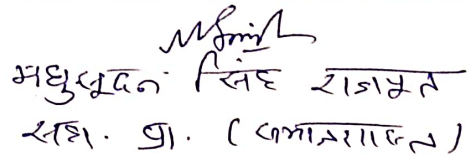 मधुसूदन सिंह राजपूत
सहा. प्रा. (समाजशास्त्र)